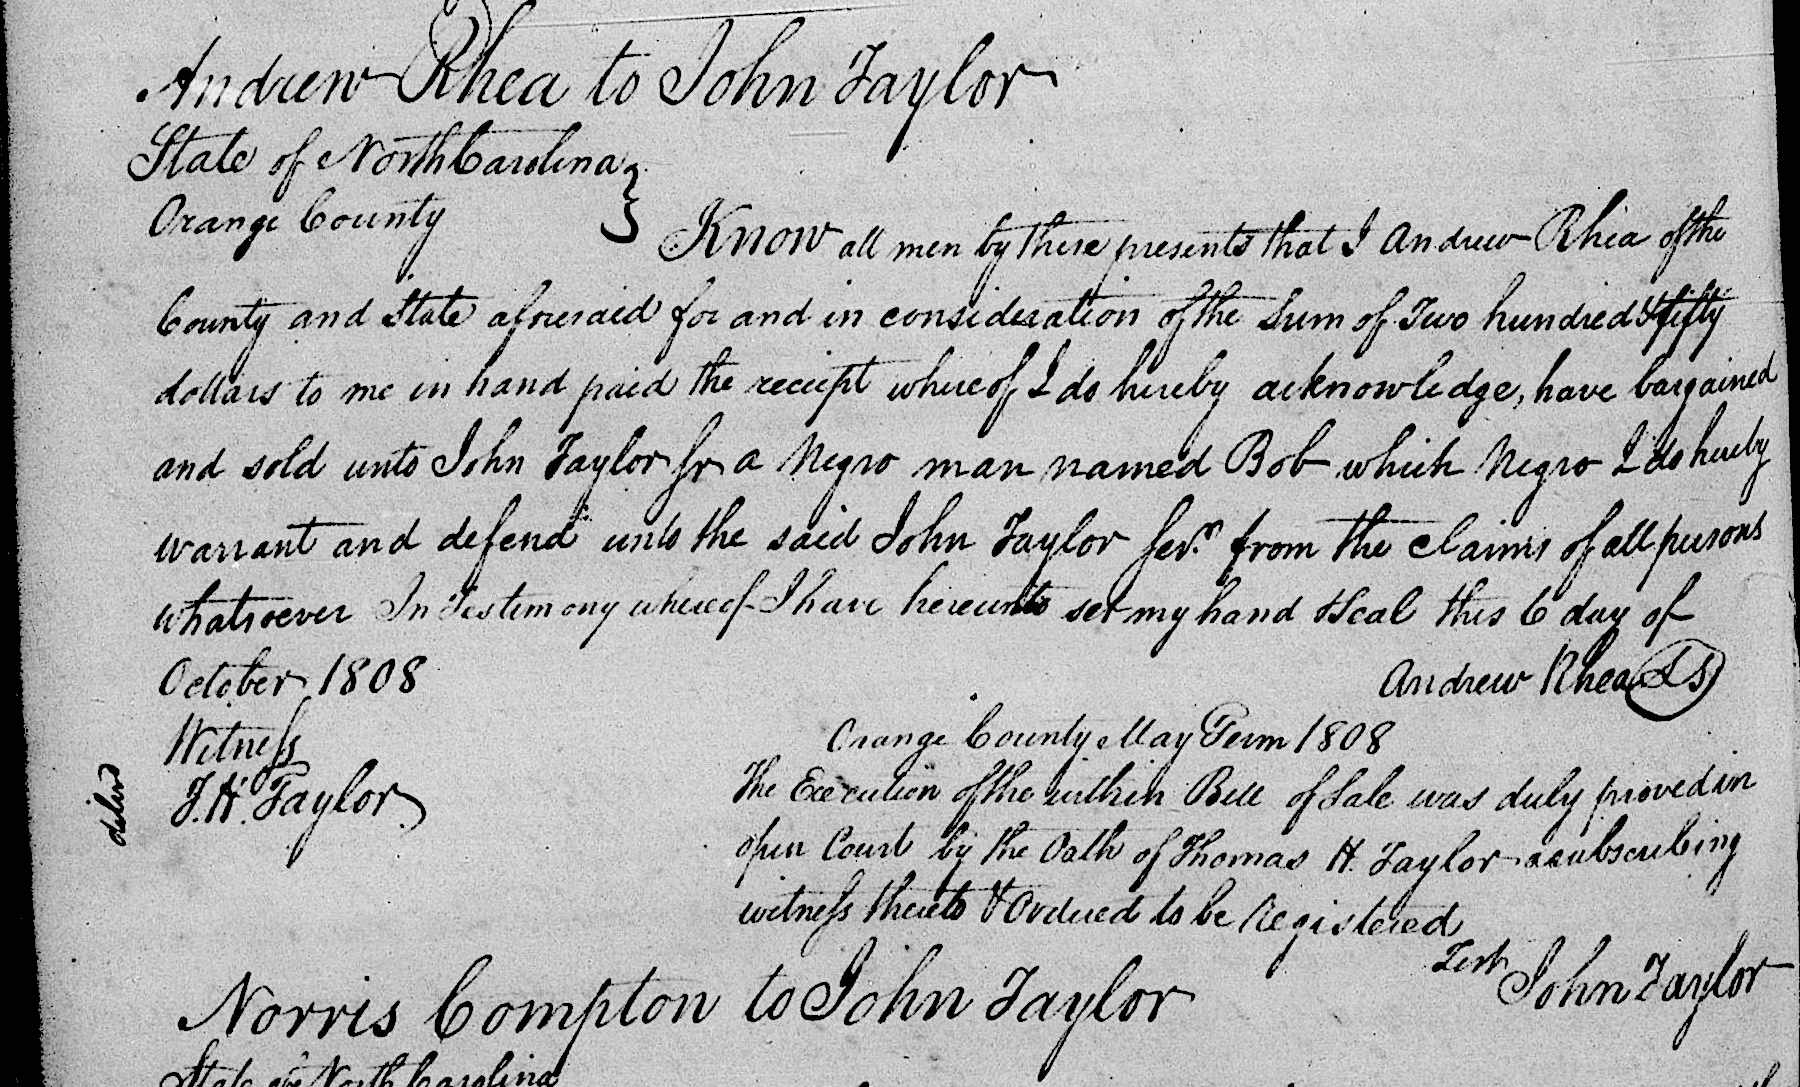 Andrew Rhea to John Taylor
State of North Carolina }
Orange County
Know all men by these presents that I Andrew Rhea of the
County and State aforesaid for and in consideration of the Sum of Two hundred & fifty
dollars to me in hand paid the receipt whereof I do hereby acknowledge, have bargained
and sold unto John Taylor Sr a Negro man named Bob which Negro I do hereby
warrant and defend unto the said John Taylor Senr. from the claims of all persons
whatsoever In Testimony whereof I have hereunto set my hand & Seal this 6 day of
October 1808
Andrew Rhea LS
Witness
J. H. Taylor
Orange County May Term 1808
The Execution of the within Bill of Sale was duly proved in
open Court by the Oath of Thomas H. Taylor a subscribing
witness thereto & Ordered to be Registered
Test John Taylor
Norris Compton to John Taylor
State of North Carolina